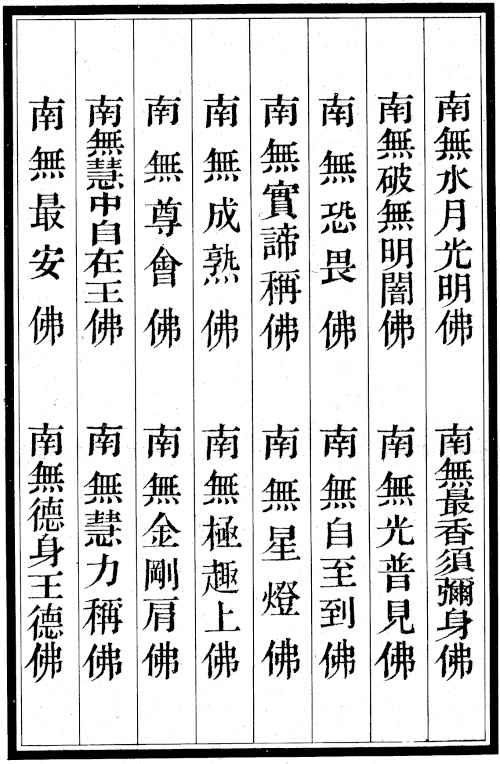 南無水月光明佛　南無最香須彌身佛
南無破無明闇佛　南無光普見佛
南無恐畏佛　南無自至到佛
南無實諦稱佛　南無星燈佛
南無成熟佛　南無極趣上佛
南無尊會佛　南無金剛肩佛
南無慧中自在王佛　南無慧力稱佛
南無最安佛　南無德身王德佛